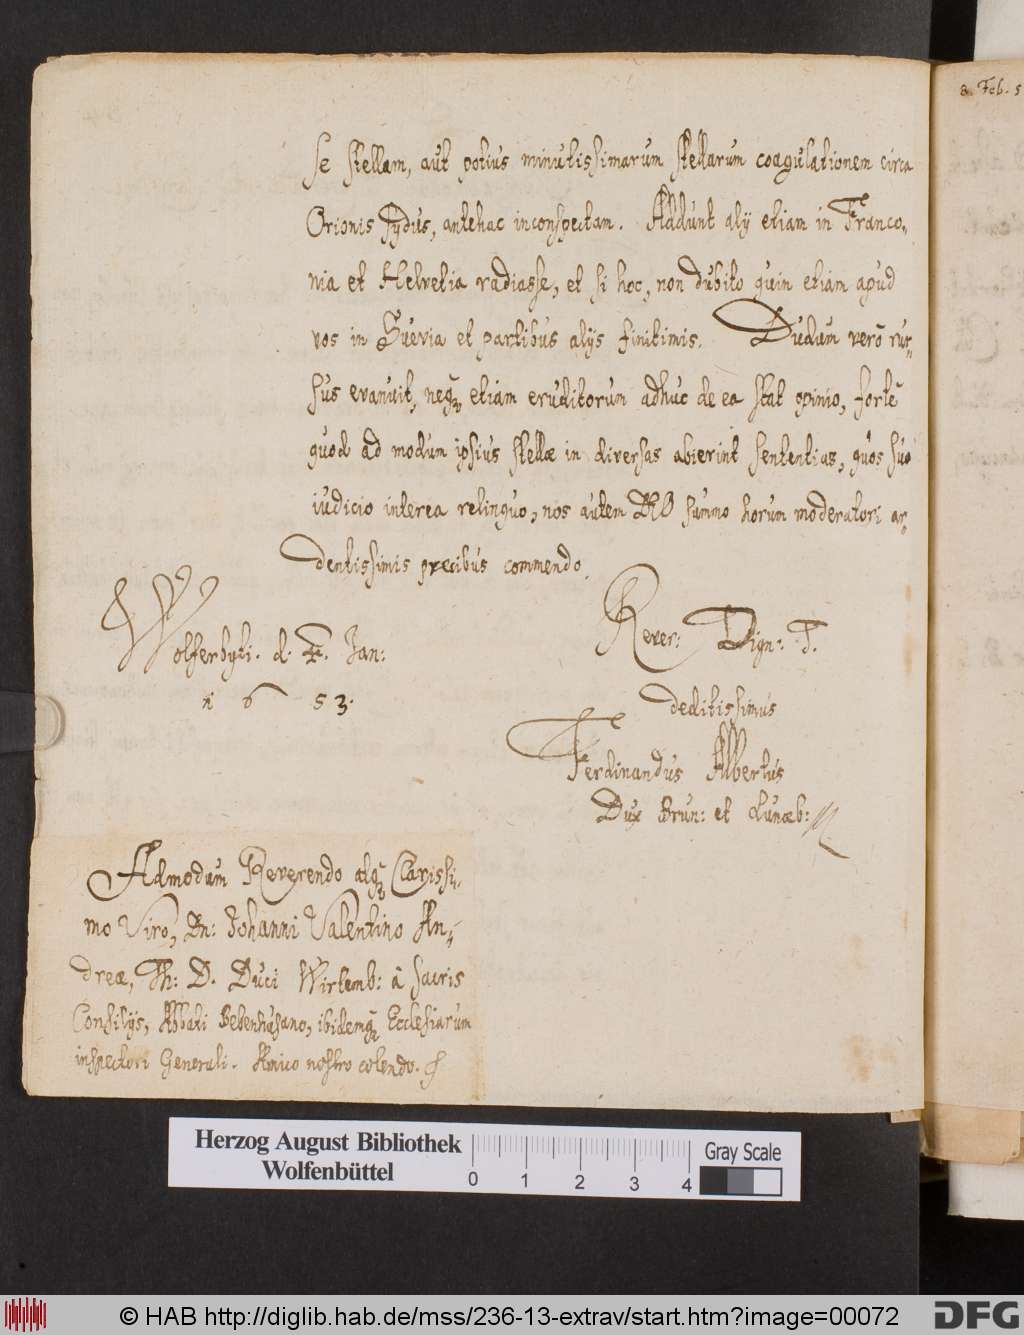 se stellam, aut potius minutissimarum stellarum coagulationem circa
Orionis sydus, antehac inconspectam. Addunt alÿ etiam in Franco,
nia et Helvetia radiasse, et si hoc, non dubito quin etiam apud
vos in Suevia et partibus alÿs finitimis. Dudum verò rur-
sus evanuit, neq; etiam eruditorum adhuc de ea stat opinio, fortè
quod ad modum ipsius stellæ in diversas abierint sententias, quos suo
iudicio interea relinquo, nos autem DEO summo horum moderatori ar-
dentissimis precibus commendo.
Wolferbyti. d. Jan:
1653.
Rever: Dign: T.
deditissimus
Ferdinandus Albertus
Dux Brun: et Lunæb:
Admodum Reverendo atq; Clarissi-
mo Viro, Dn: Johanni Valentino An-
dreæ, Th: D. Duci Wirtemb: à sacris
Consilÿs, Abbati Bebenhusano, ibidemq; Ecclesiarum
inspectori Generali. Amico nostro colendo.
8. Feb. 5
Herzog August Bibliothek
Wolfenbüttel
0 1 2 3 4
Gray Scale
© HAB http://diglib.hab.de/mss/236-13-extrav/start.htm?image=00072
DFG